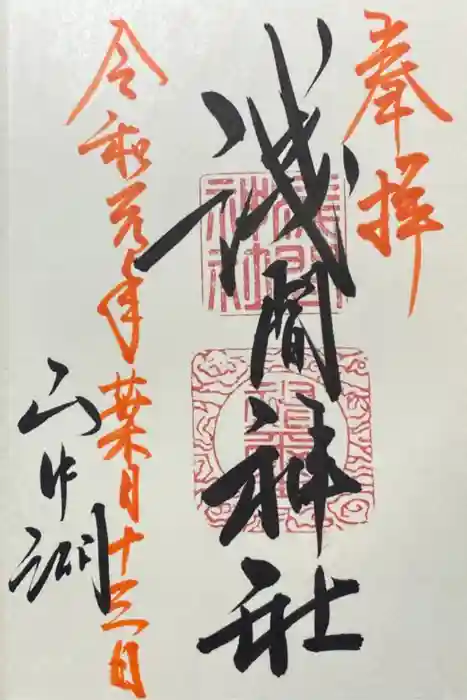 奉拝
浅間神社
令和元年葉月十三日
山中湖